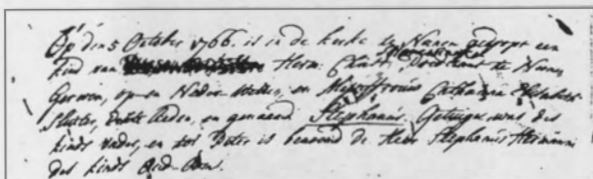 Op den 5 October 1766. is in de kerke te Nunen gedoopt een
kind van Herm. Predikant te Nunen
Gerwen, op en Neder Wetten, en Mejuffrouw Catharina Elisabeth
en genaamd Stephanus. Getuige was des
kinds vader, en tot Peter is benoemd de Heer Stephanus Hermanni
des kinds Oud-Oom.